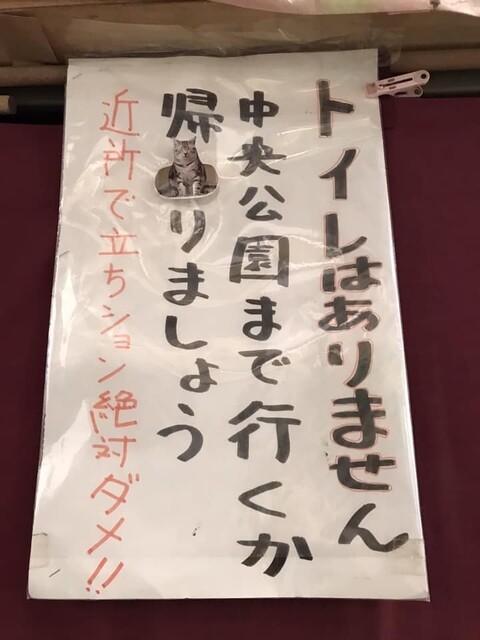 トイレはありません
中央公園まで行くか
帰りましょう
近所で立ちション絶対ダメ!!